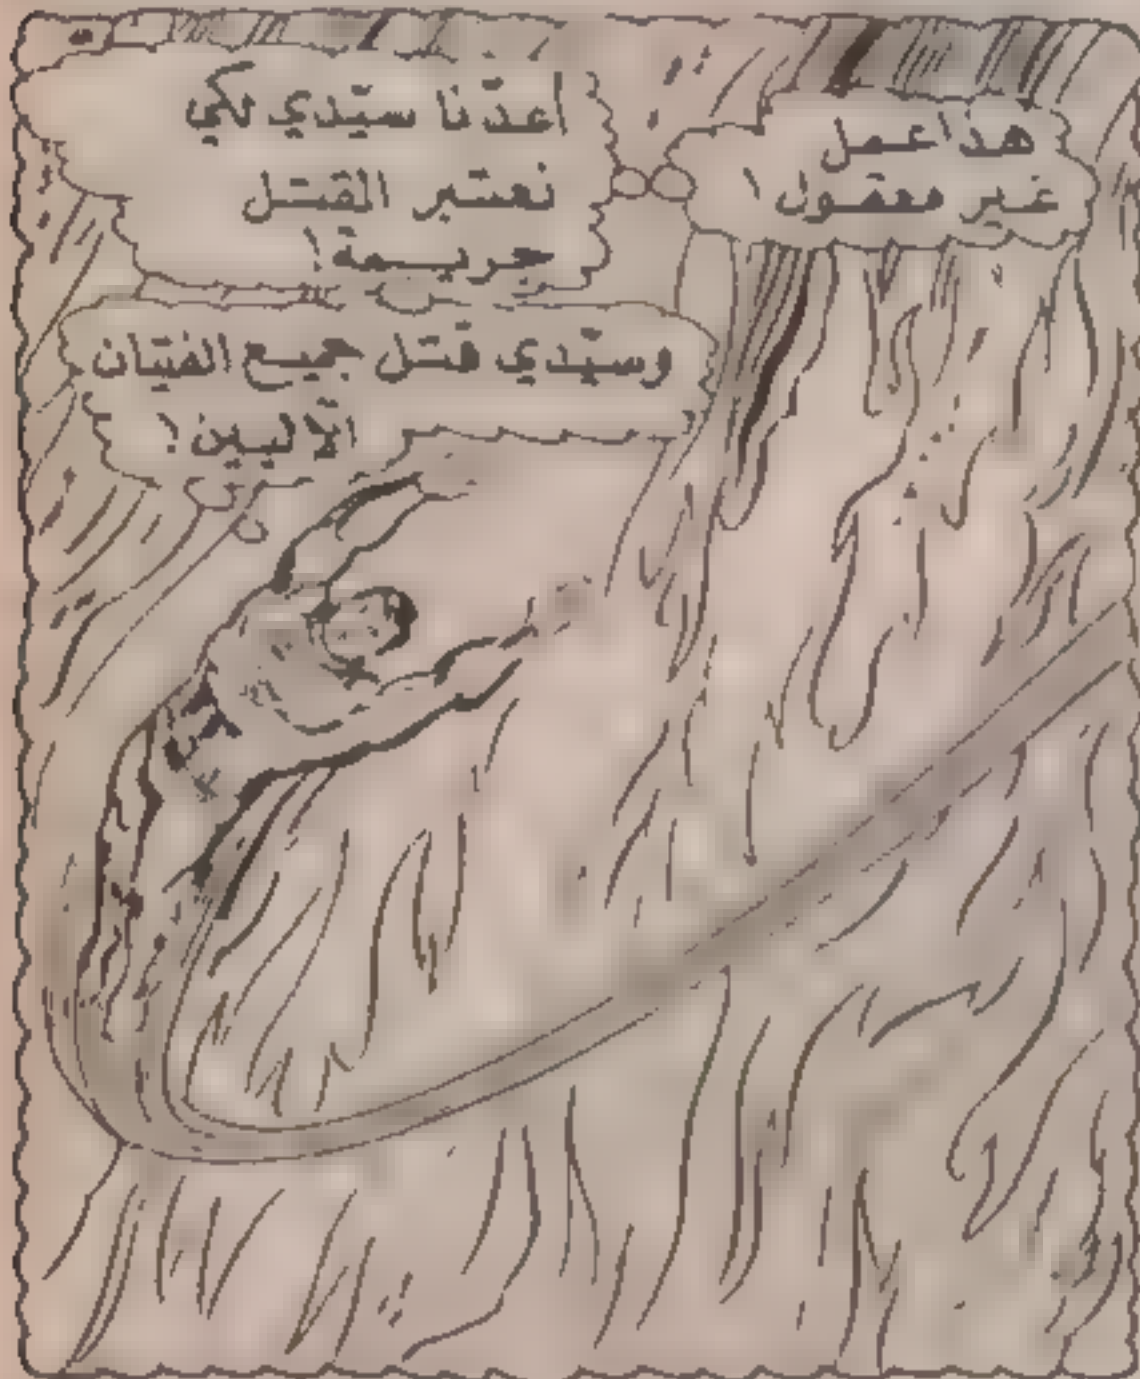 هذا عمل
غير معقول !
أعدّنا سيّدي لكي
نعتبر القتل
جريمة !
وسيّدي قتل جميع الفتيان
الآليين !